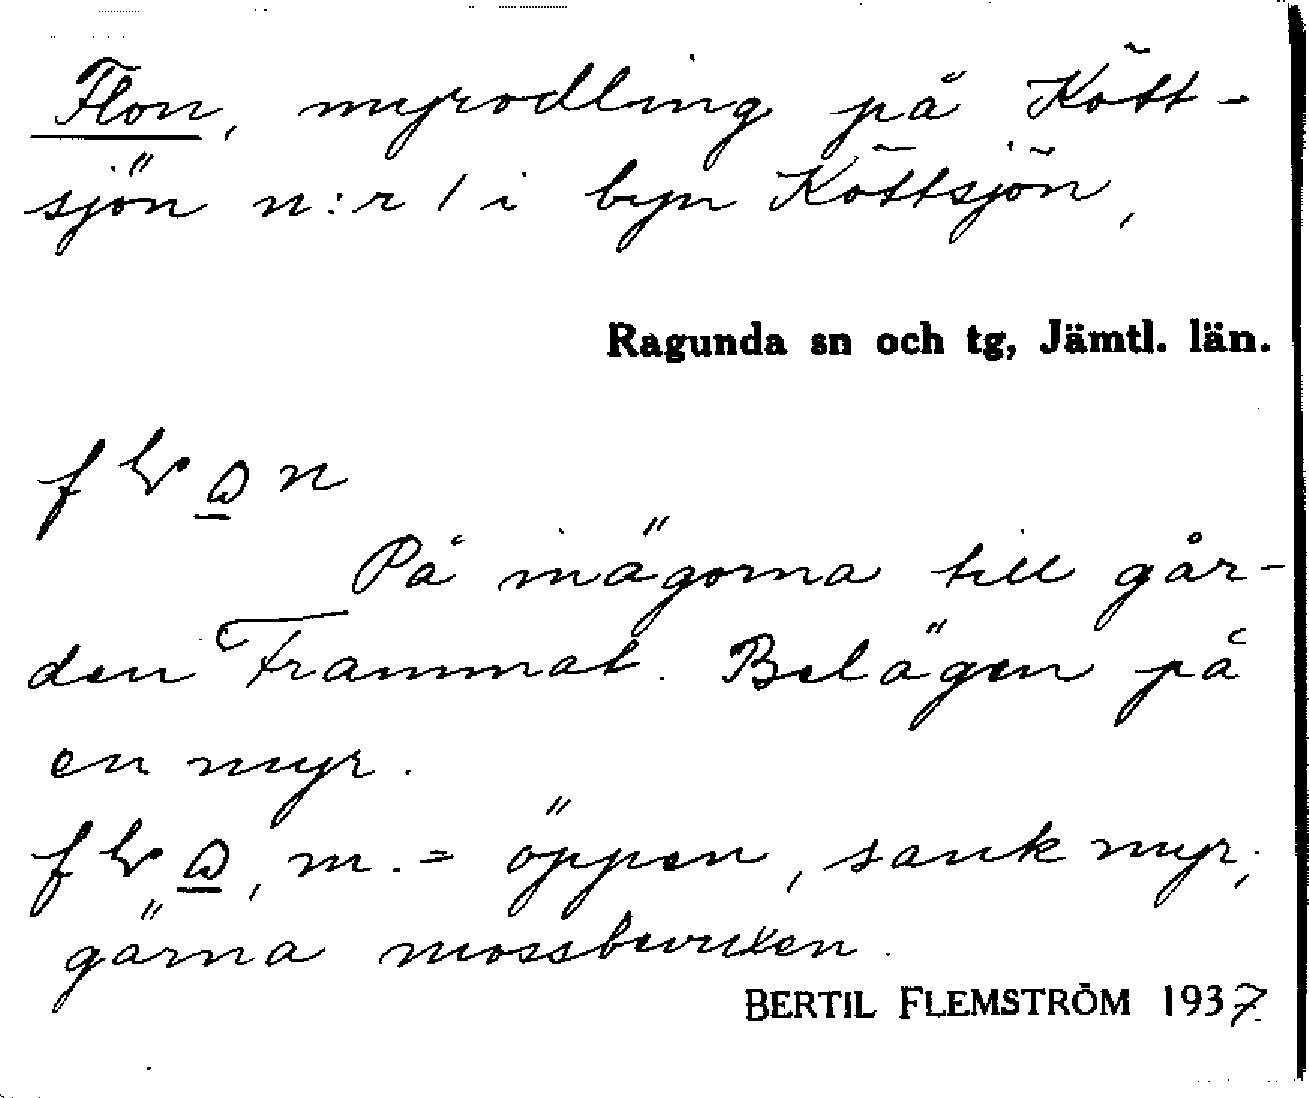 Flon, myrodling på Kött-
sjön n:r 1 i byn Köttsjön,
Ragunda sn och tg, Jämtl. län.
På inägorna till går-
den Frammat. Belägen på
en myr.
m. = öppen, sank myr,
gärna mossbevuxen.
BERTIL FLEMSTRÖM 1937